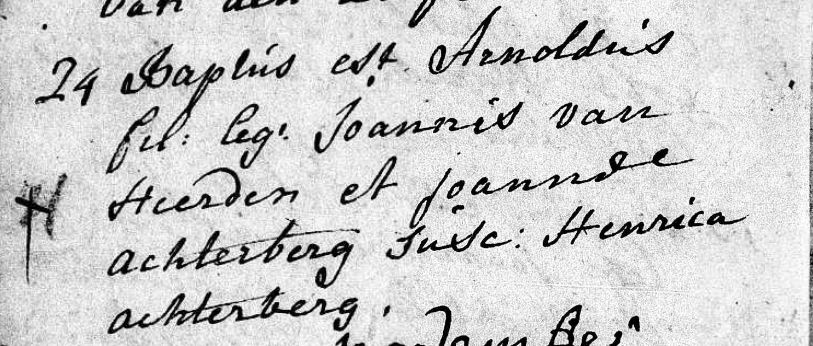 van den
24 Baptus est Arnoldus
fil: leg: Joannis van
Heerden et joannae
achterberg susc: Henrica
achterberg.